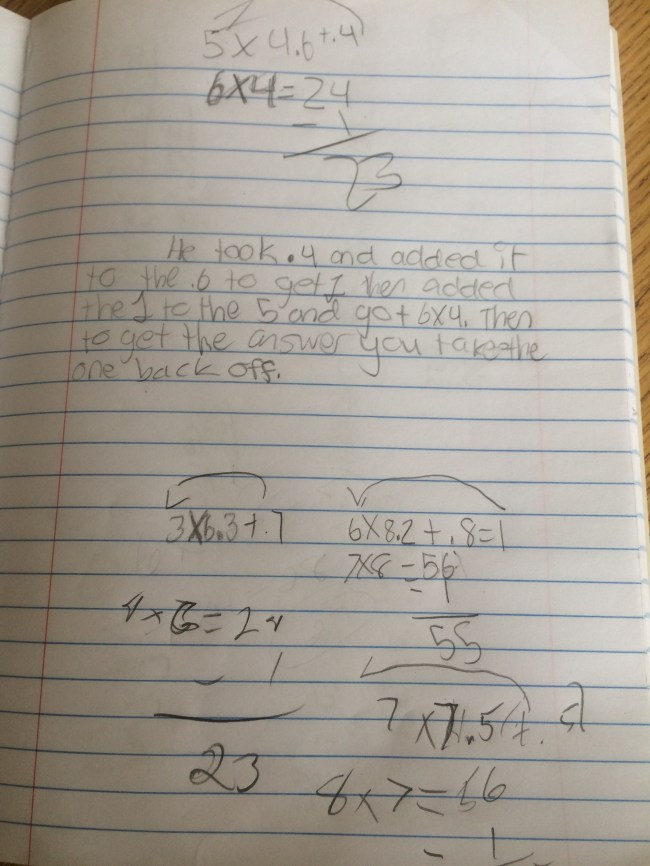 5 x 4.6 + .4
6x4=24
- 1
23
He took .4 and added it
to the .6 to get 1 then added
the 1 to the 5 and got 6x4. Then
to get the answer you take the
one back off.
3x6.3+.7
6x8.2 + .8=1
7x8 =56
- 1
55
4 x 6 = 24
- 1
23
7 x 7.5 + .5
8 x 7 = 56
- 1